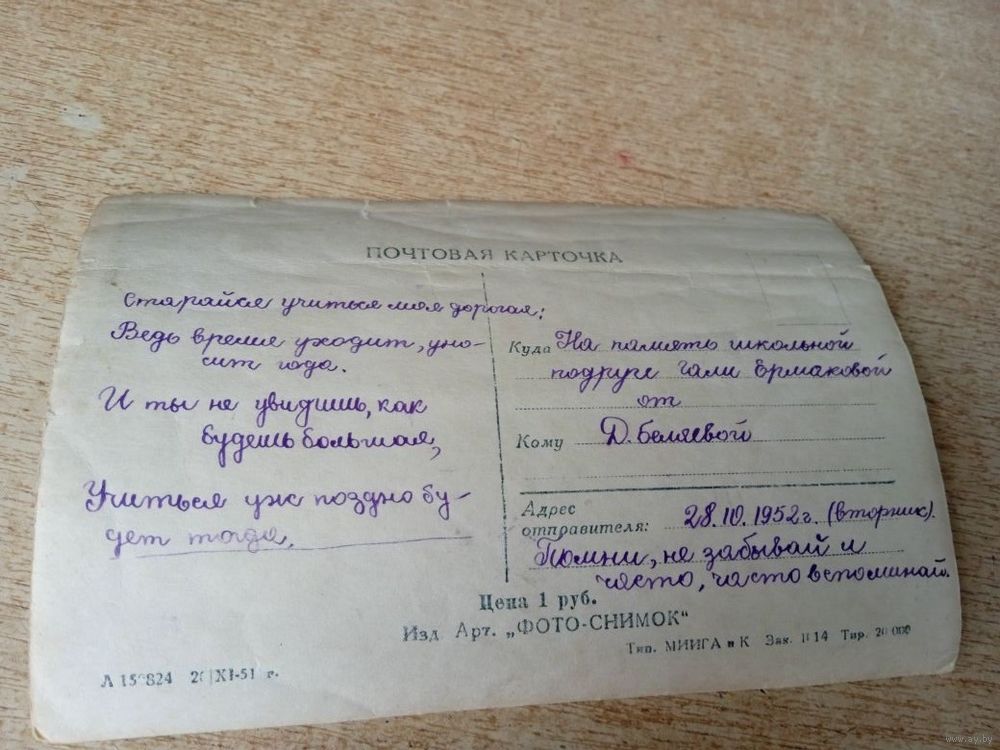 ПОЧТОВАЯ КАРТОЧКА
Старайся учиться моя дорогая:
Ведь время уходит, уно-
сит года.
И ты не увидишь, как
будешь большая,
Учиться уже поздно бу-
дет тогда.
Куда На память школьной
подруге Гали Ермаковой
от
Кому Д. Беляевой
Адрес
отправителя: 28.10.1952г. (вторник).
Помни, не забывай и
часто, часто вспоминай.
Цена 1 руб.
Изд Арт. „ФОТО-СНИМОК"
Тип. МИИГА и К Зак. Тир. 20 000
Л XI-51 г.
www.ay.by